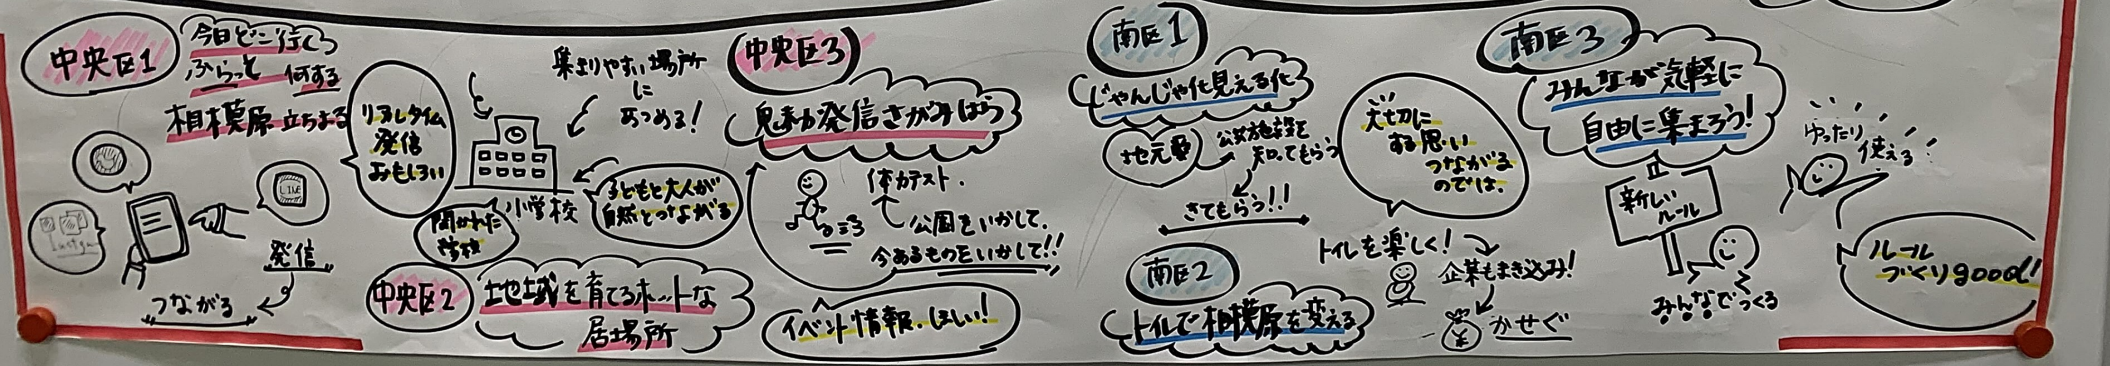 中央区1
今日どこ行く
ふらっと 何する
相模原 立ちよる
リアルタイム
発信
おもしろい
LIVE
発信
つながる
集まりやすい場所
に
あつめる！
小学校
開かれた
学校
子どもと大人が
自然とつながる
中央区2
地域を育てるホットな
居場所
中央区3
魅力発信さがみはら
体力テスト．
公園をいかして．
今あるものをいかして!!
イベント情報．ほしい！
南区1
じゃんじゃや化見える化
地元愛
公共施設を
知ってもらう
きてもらう!!
大切に
する思い
つながる
のでは．
南区2
トイレで相模原を変える
トイレを楽しく！
企業もまき込み！
かせぐ
南区3
みんなが気軽に
自由に集まろう！
新しい
ルール
みんなでつくる
ゆったり
使える！
ルール
づくりgood!